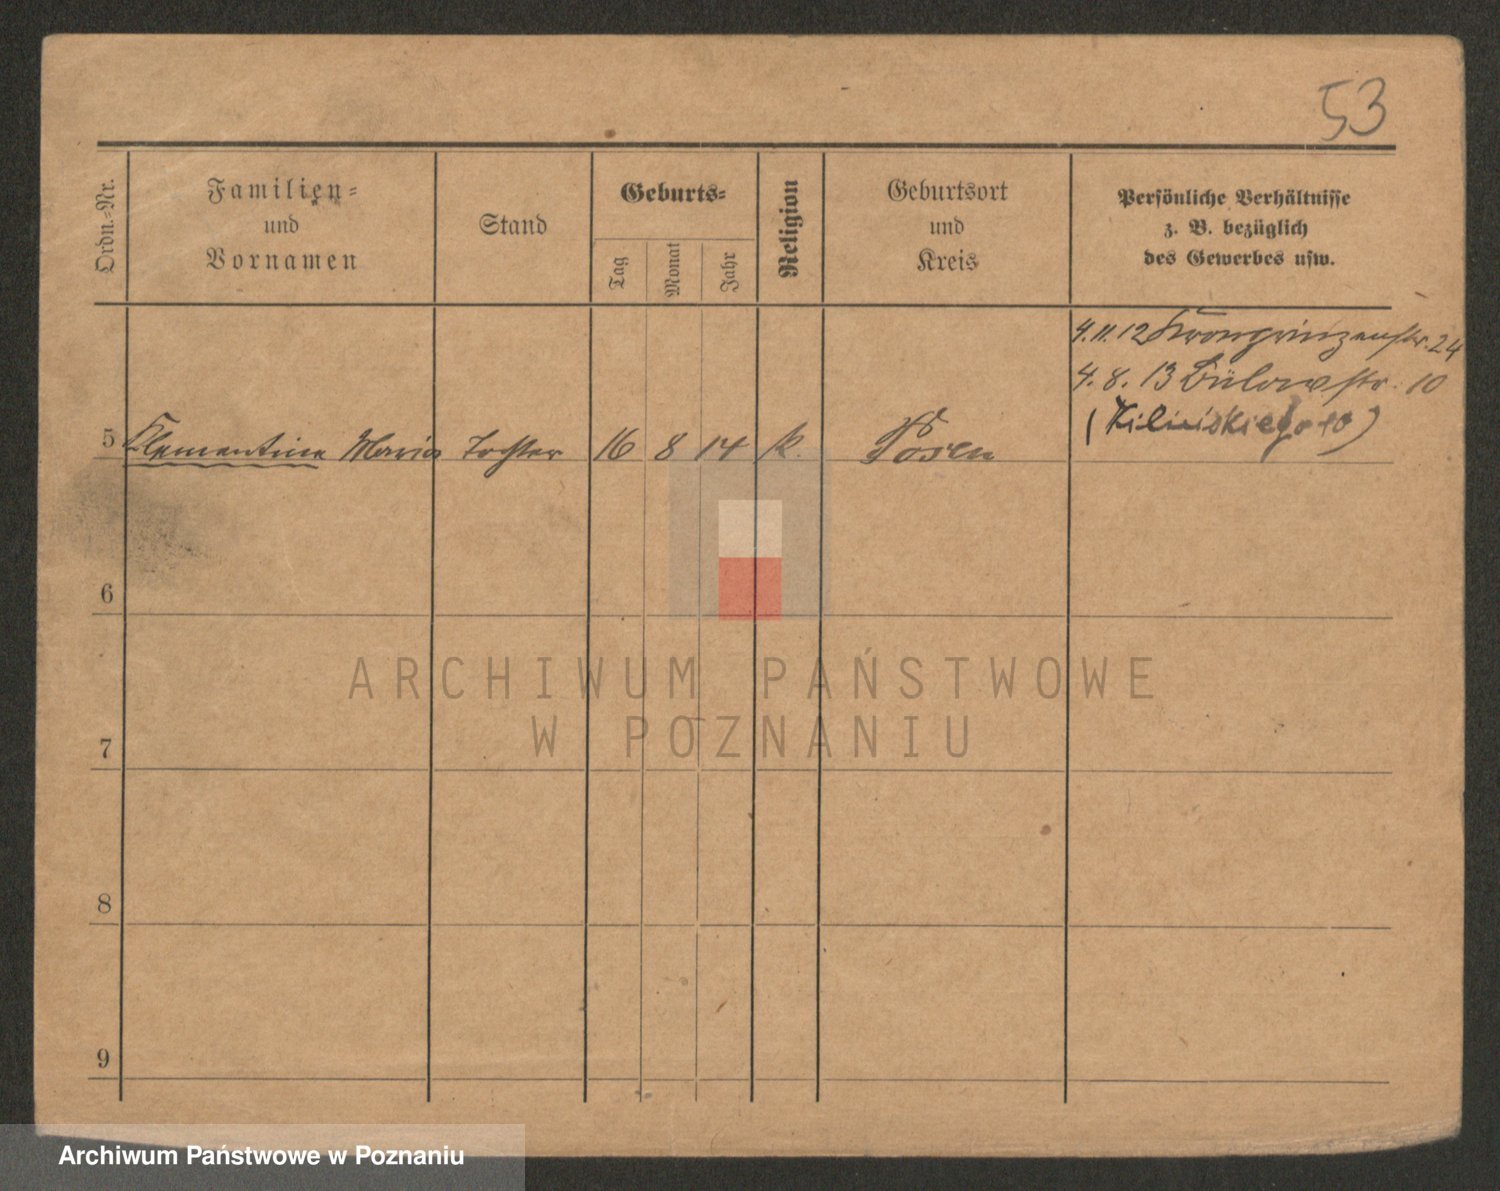 53
Ordn.-Nr.
Familien-
und
Vornamen
Stand
Geburts-
Tag
Monat
Jahr
Religion
Geburtsort
und
Kreis
Persönliche Verhältnisse
z. B. bezüglich
des Gewerbes usw.
4.11.12 Kronprinzenstr. 24
4.8.13 Bülowstr. 10
(Kilińskiego 10)
5 Klementine Maria Tochter 16 8 14 k. Posen
6
7
8
9
ARCHIWUM PAŃSTWOWE
W POZNANIU
Archiwum Państwowe w Poznaniu